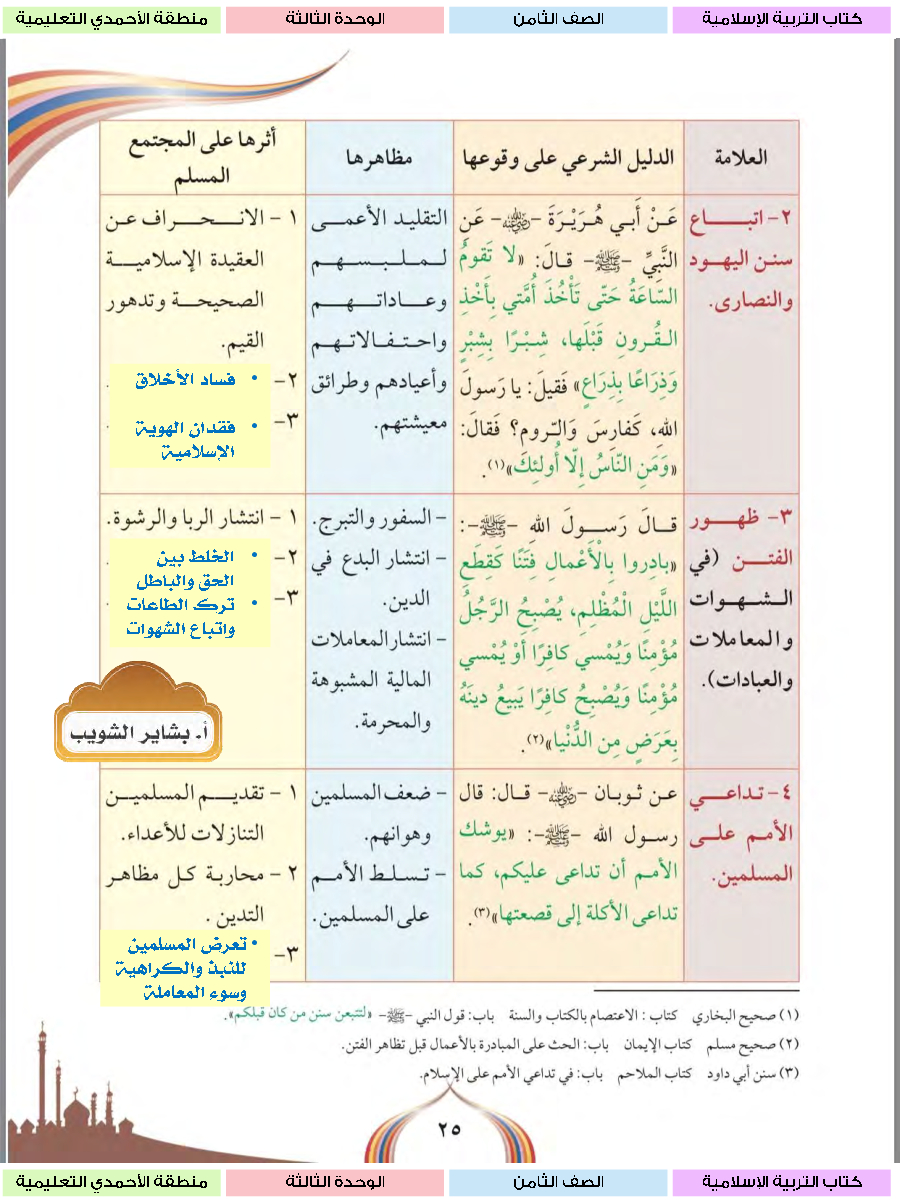 كتاب التربية الإسلامية
الصف الثامن
الوحدة الثالثة
منطقة الأحمدي التعليمية
العلامة
الدليل الشرعي على وقوعها
مظاهرها
أثرها على المجتمع
المسلم
٢- اتباع
سنن اليهود
والنصارى.
عَنْ أَبي هُرَيْرَةَ -رضي الله عنه- عَنِ
النَّبِيِّ -ﷺ- قالَ: «لا تَقومُ
السّاعَةُ حَتّى تَأْخُذَ أُمَّتي بِأَخْذِ
القُرونِ قَبْلَها، شِبْرًا بِشِبْرٍ
وَذِراعًا بِذِراعٍ» فَقيلَ: يا رَسولَ
اللهِ، كَفارِسَ وَالرّومِ؟ فَقالَ:
«وَمَنِ النّاسُ إِلّا أُولئِكَ»(١).
التقليد الأعمى
لملبسهم
وعاداتهم
واحتفالاتهم
وأعيادهم وطرائق
معيشتهم.
١ - الانحراف عن
العقيدة الإسلامية
الصحيحة وتدهور
القيم.
٢- • فساد الأخلاق
٣- • فقدان الهوية
الإسلامية
٣- ظهور
الفتن (في
الشهوات
والمعاملات
والعبادات).
قالَ رَسولَ اللهِ -ﷺ-:
«بادِروا بِالْأَعْمالِ فِتَنًا كَقِطَعِ
اللَّيْلِ الْمُظْلِمِ، يُصْبِحُ الرَّجُلُ
مُؤْمِنًا وَيُمْسي كافِرًا أَوْ يُمْسي
مُؤْمِنًا وَيُصْبِحُ كافِرًا يَبيعُ دينَهُ
بِعَرَضٍ مِن الدُّنْيا»(٢).
- السفور والتبرج.
- انتشار البدع في
الدين.
- انتشار المعاملات
المالية المشبوهة
والمحرمة.
١ - انتشار الربا والرشوة.
٢- • الخلط بين
الحق والباطل
٣- • ترك الطاعات
واتباع الشهوات
أ. بشاير الشويب
٤- تداعي
الأمم على
المسلمين.
عن ثوبان -رضي الله عنه- قال: قال
رسول الله -ﷺ-: «يوشك
الأمم أن تداعى عليكم، كما
تداعى الأكلة إلى قصعتها»(٣).
- ضعف المسلمين
وهوانهم.
- تسلط الأمم
على المسلمين.
١ - تقديم المسلمين
التنازلات للأعداء.
٢ - محاربة كل مظاهر
التدين .
٣- • تعرض المسلمين
للنبذ والكراهية
وسوء المعاملة
(١) صحيح البخاري كتاب : الاعتصام بالكتاب والسنة باب: قول النبي -ﷺ- «لتتبعن سنن من كان قبلكم».
(٢) صحيح مسلم كتاب الإيمان باب: الحث على المبادرة بالأعمال قبل تظاهر الفتن.
(٣) سنن أبي داود كتاب الملاحم باب: في تداعي الأمم على الإسلام.
٢٥
كتاب التربية الإسلامية
الصف الثامن
الوحدة الثالثة
منطقة الأحمدي التعليمية